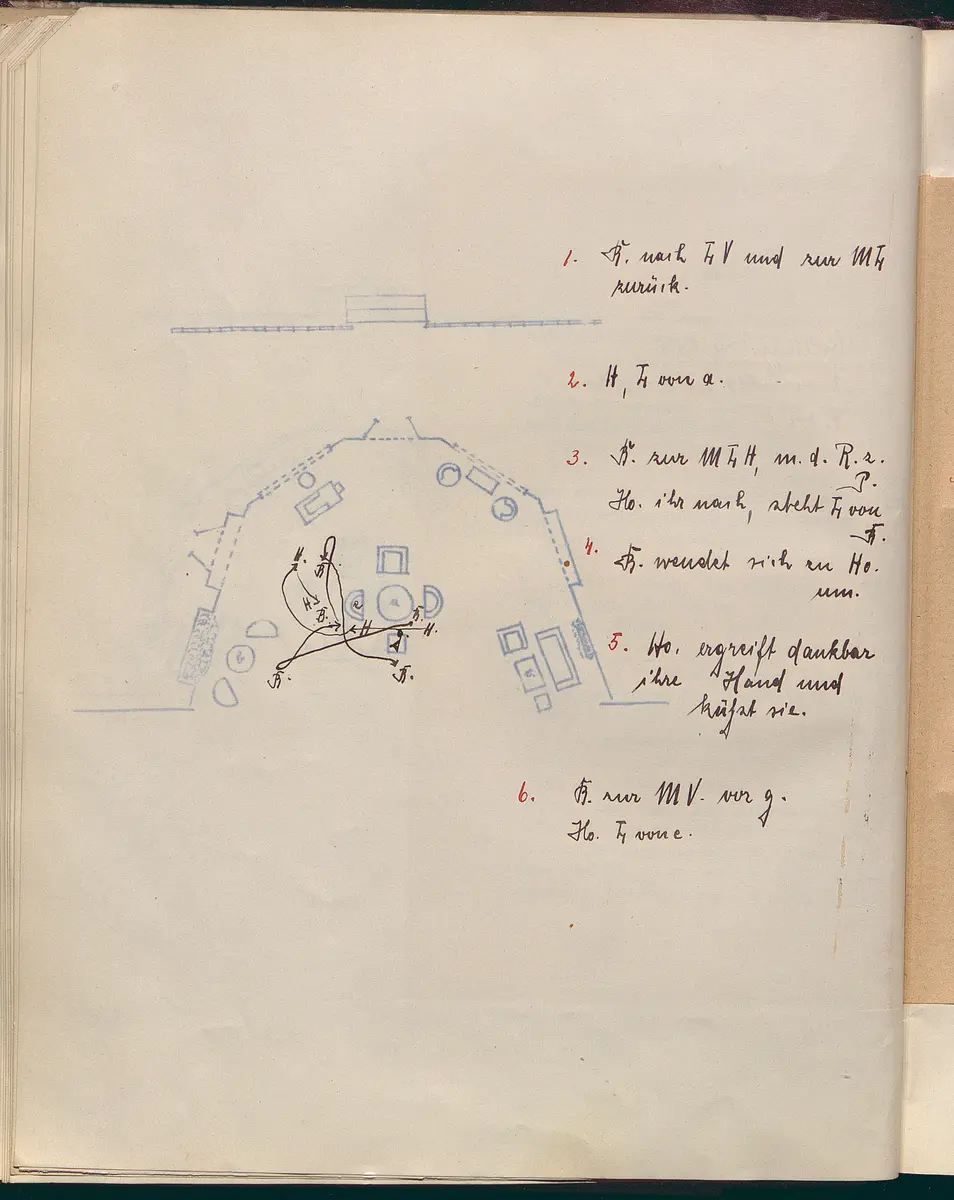 1. K. nach L V und zur M L
zurück.
2. H, L von a.
3. K. zur M L H, m. d. R. z.
P.
Ho. ihr nach, steht L von
K.
4. K. wendet sich zu Ho.
um.
5. Ho. ergreift dankbar
ihre Hand und
küßt sie.
6. K. zur M V. vor g.
Ho. L von e.
H.
K.
H
K.
e
a
K.
H
H.
g
K.
K.
b
c